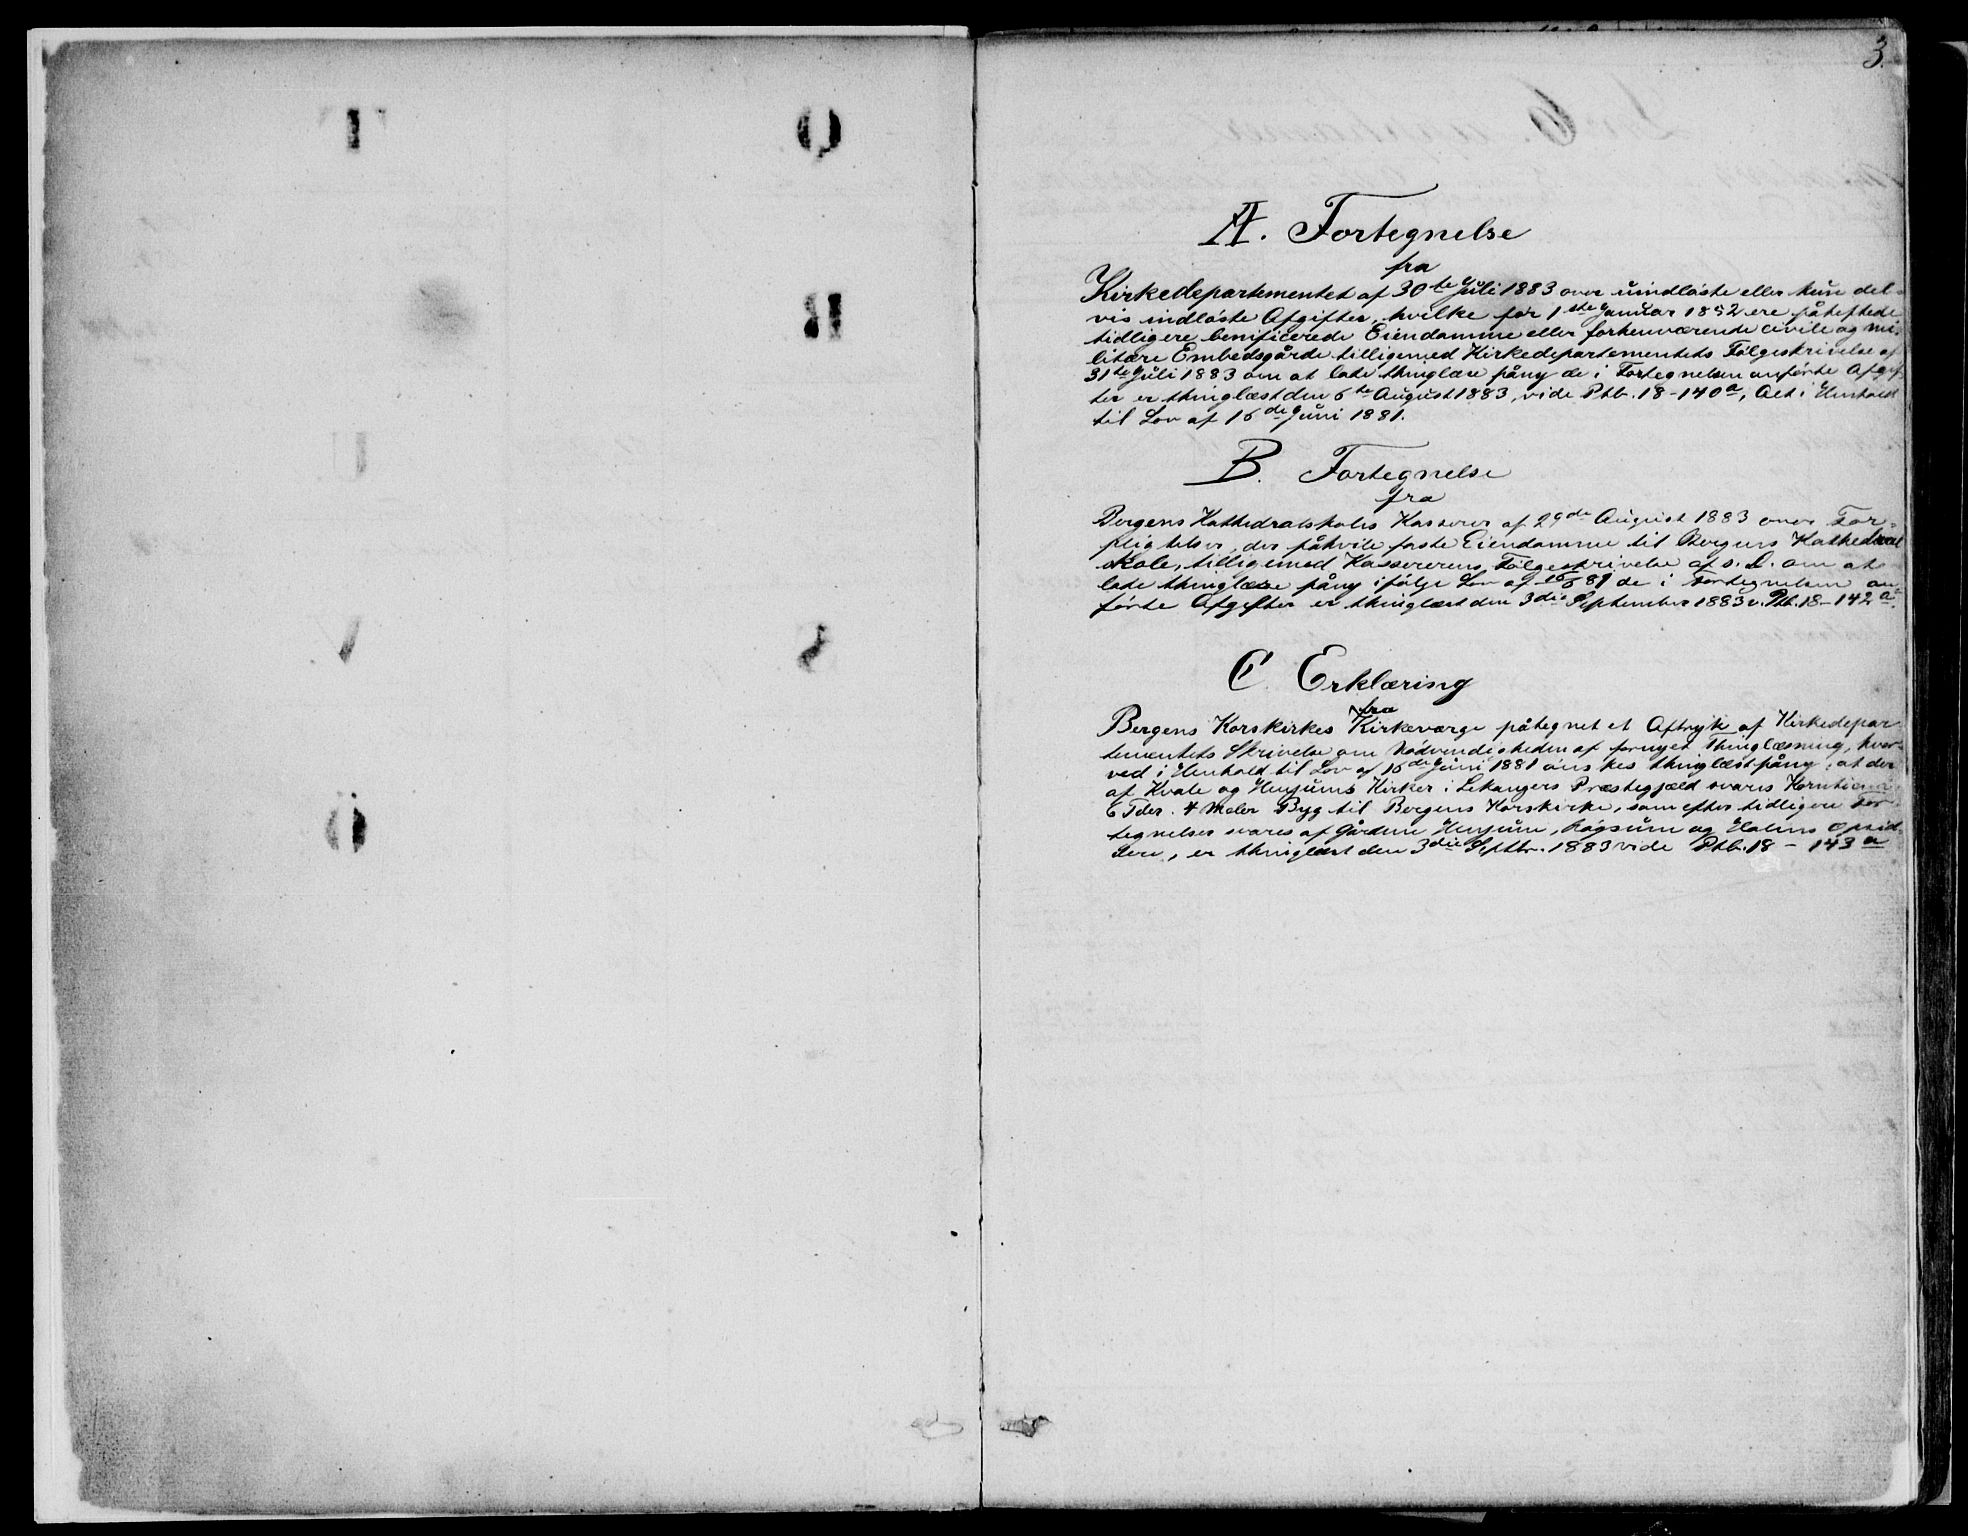 3.
A. Fortegnelse
fra
Kirkedepartementet af 30te Juli 1883 over uindløste eller kun del-
vis indløste Afgifter, hvilke før 1ste Januar 1832 ere påheftede
tidligere benificerede Eiendomme eller forhenværende civile og mi-
litære Embedsgårde tilligemed Kirkedepartementets Følgeskrivelse af
31te Juli 1883 om at lade thinglæse påny de i Fortegnelsen anførte Afgif-
ter er thinglæst den 6te August 1883, vide Ptb. 18-140a, Alt i Henhold
til Lov af 16de Juni 1881.
B. Fortegnelse
fra
Bergens Kathedralskoles Kasserer af 29de August 1883 over For-
pligtelser, der påhvile faste Eiendomme til Bergens Kathedral
skole, tilligemed Kassererens Følgeskrivelse af s. D. om at
lade thinglæse påny ifølge Lov af 16/6 81 de i Fortegnelsen an-
førte Afgifter er thinglæst den 3die September 1883 v. Ptb. 18-142a.
C. Erklæring
fra
Bergens Korskirkes Kirkeværge påtegnet et Aftryk af Kirkedepar
tementets Skrivelse om Nødvendigheden af fornyet Thinglæsning, hvor-
ved i Henhold til Lov af 16de Juni 1881 ønskes thinglæst påny, at der
af Kvale og Henjums Kirker i Lekangers Præstegjæld svares Korntiende
6 Tdr. 4 Meler Byg til Bergens Korskirke, som efter tidligere For-
tegnelser svares af Gårdene Henjum, Røgsum og Holms Opsid-
dere, er thinglæst den 3die Septbr. 1883 vide Ptb. 18 - 143a